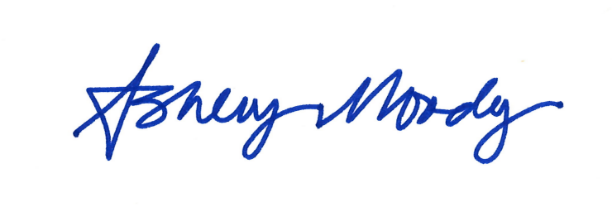 Ashley Moody